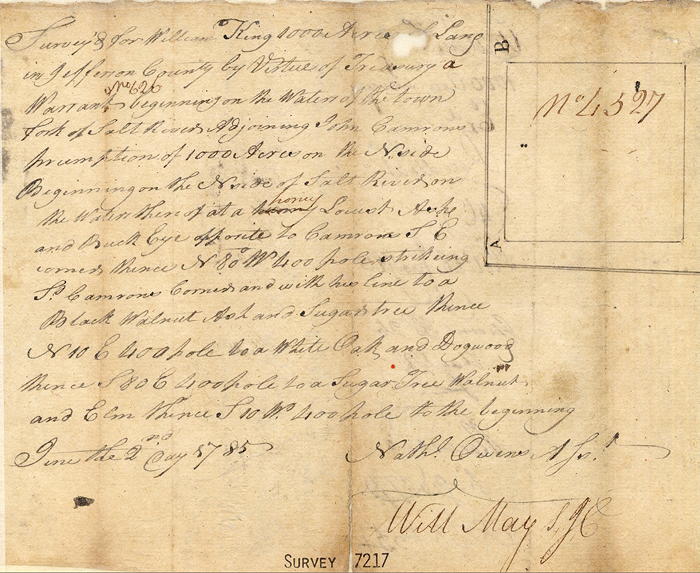 Survey'd for William King 1000 Acres of Land
in Jefferson County by Virtue of Treasury a
No 626
Warrant beginning on the Waters of the town
fork of Salt River Adjoining John Camrons
preemption of 1000 Acres on the N. side
Beginning on the N side of Salt River on
the Waters thereof at a honey Locust Ashe
and Buck Eye opposite to Camrons S E
corner thence N 80 W 400 pole striking
Sd Camrons Corner and with his line to a
Black Walnut Ash and Sugar tree thence
N 10 E 400 pole to a White Oak and Dogwood
thence S 80 E 400 pole to a Sugar Tree Walnut
and Elm thence S 10 W. 400 pole to the beginning
June the 2nd Day 1785
Nathl. Owens A Sr.
Will May S J C
B
No 4527
A
SURVEY 7217